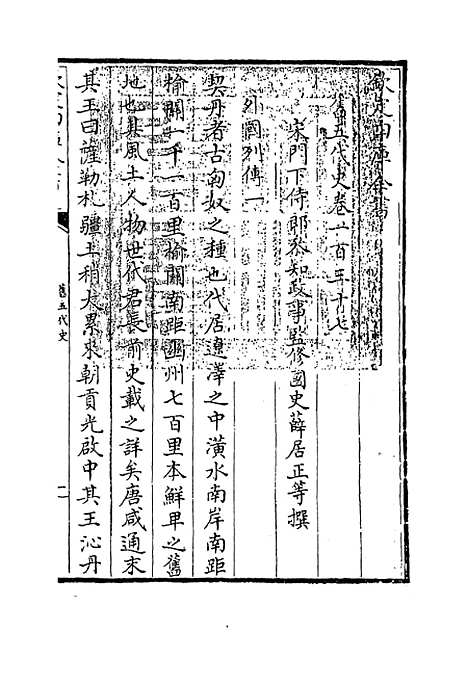 欽定四庫全書
舊五代史卷一百三十七
宋門下侍郎參知政事監修國史薛居正等撰
外國列傳一
契丹者古匈奴之種也代居遼澤之中潢水南岸南距
榆關一千一百里榆關南距幽州七百里本鮮卑之舊
地也其風土人物世代君長前史載之詳矣唐咸通末
其王曰薩勒札疆土稍大累來朝貢光啟中其王沁丹
舊五代史
一